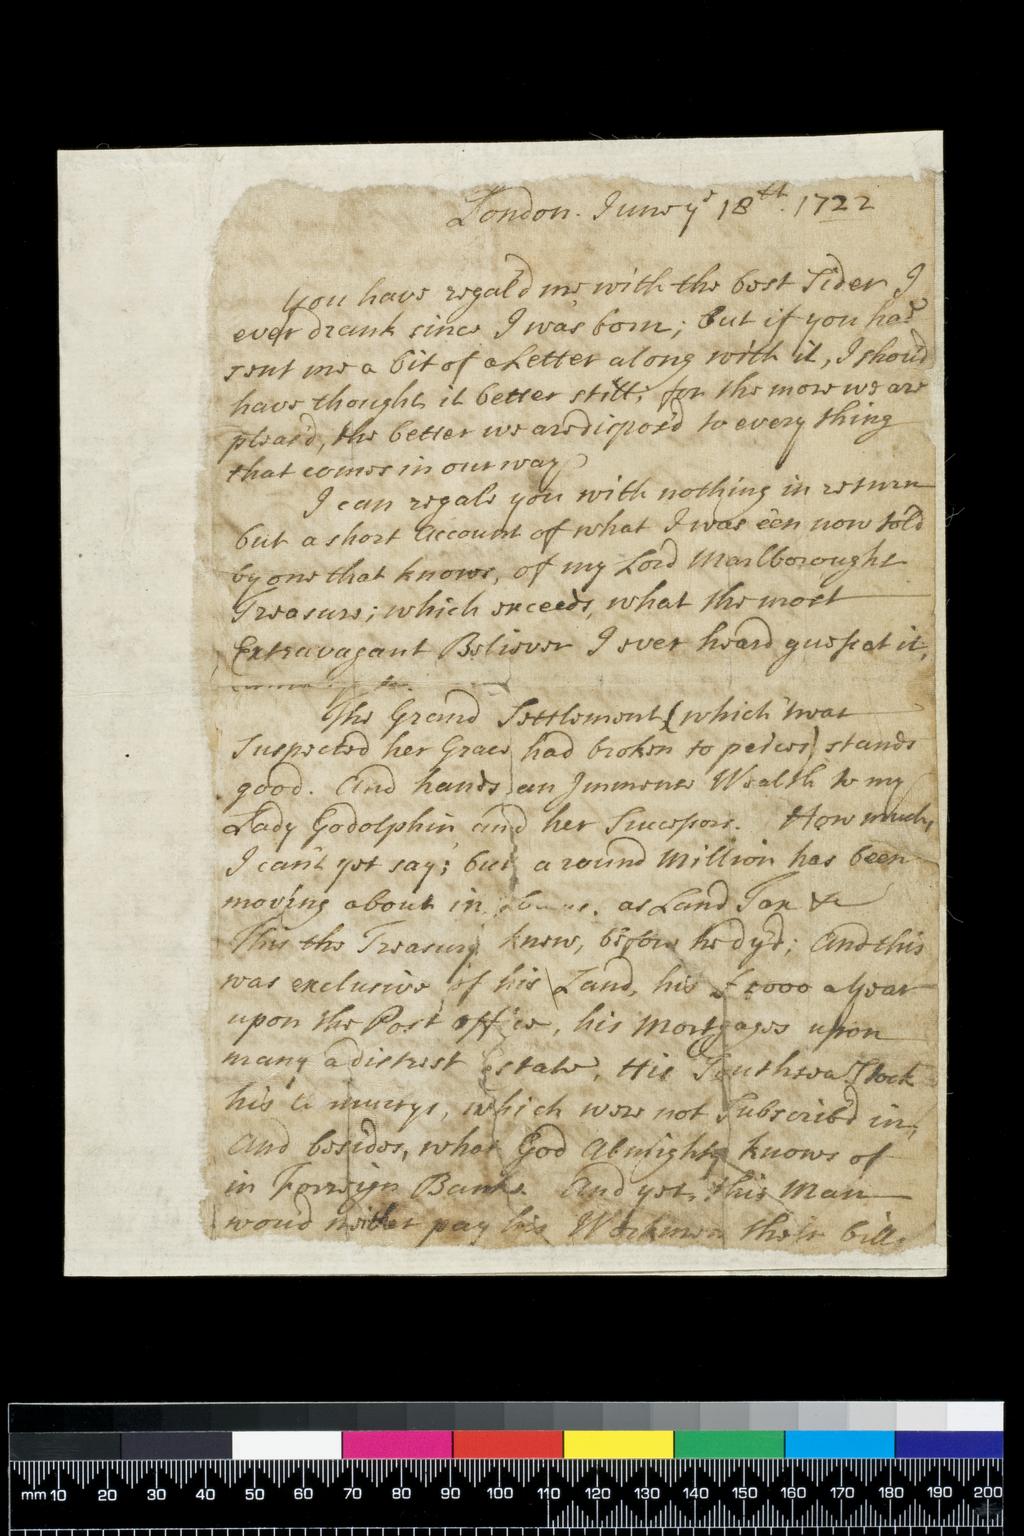 London. June ye 18th. 1722
You have regal'd me with the best Sider I
ever drank since I was born; but if you had
sent me a bit of a Letter along with it, I shou'd
have thought it better still; for the more we are
pleas'd, the better we are dispos'd to every thing
that comes in our way.
I can regale you with nothing in return
but a short account of what I was e'en now told
by one that knows, of my Lord Marlboroughs
Treasure; which exceeds, what the most
Extravagant Believer I ever heard guess at it.
The Grand Settlement (which 'twas
Suspected her Grace had broken to peices) stands
good. And hands an Immense Wealth to my
Lady Godolphin and her Successors. How much,
I can't yet say; but a round Million has been
moving about in as Land Tax &c
This the Treasury knew, before he dy'd; And this
was exclusive of his Land, his £5000 a Year
upon the Post office, his Mortgages upon
many a distrest Estate, His South sea Stock
his which were not Subscrib'd in,
And besides, what God Almighty knows of
in Forreign Banks. And yet, this Man
wou'd neither pay his Workmen their bills
mm 10 20 30 40 50 60 70 80 90 100 110 120 130 140 150 160 170 180 190 200